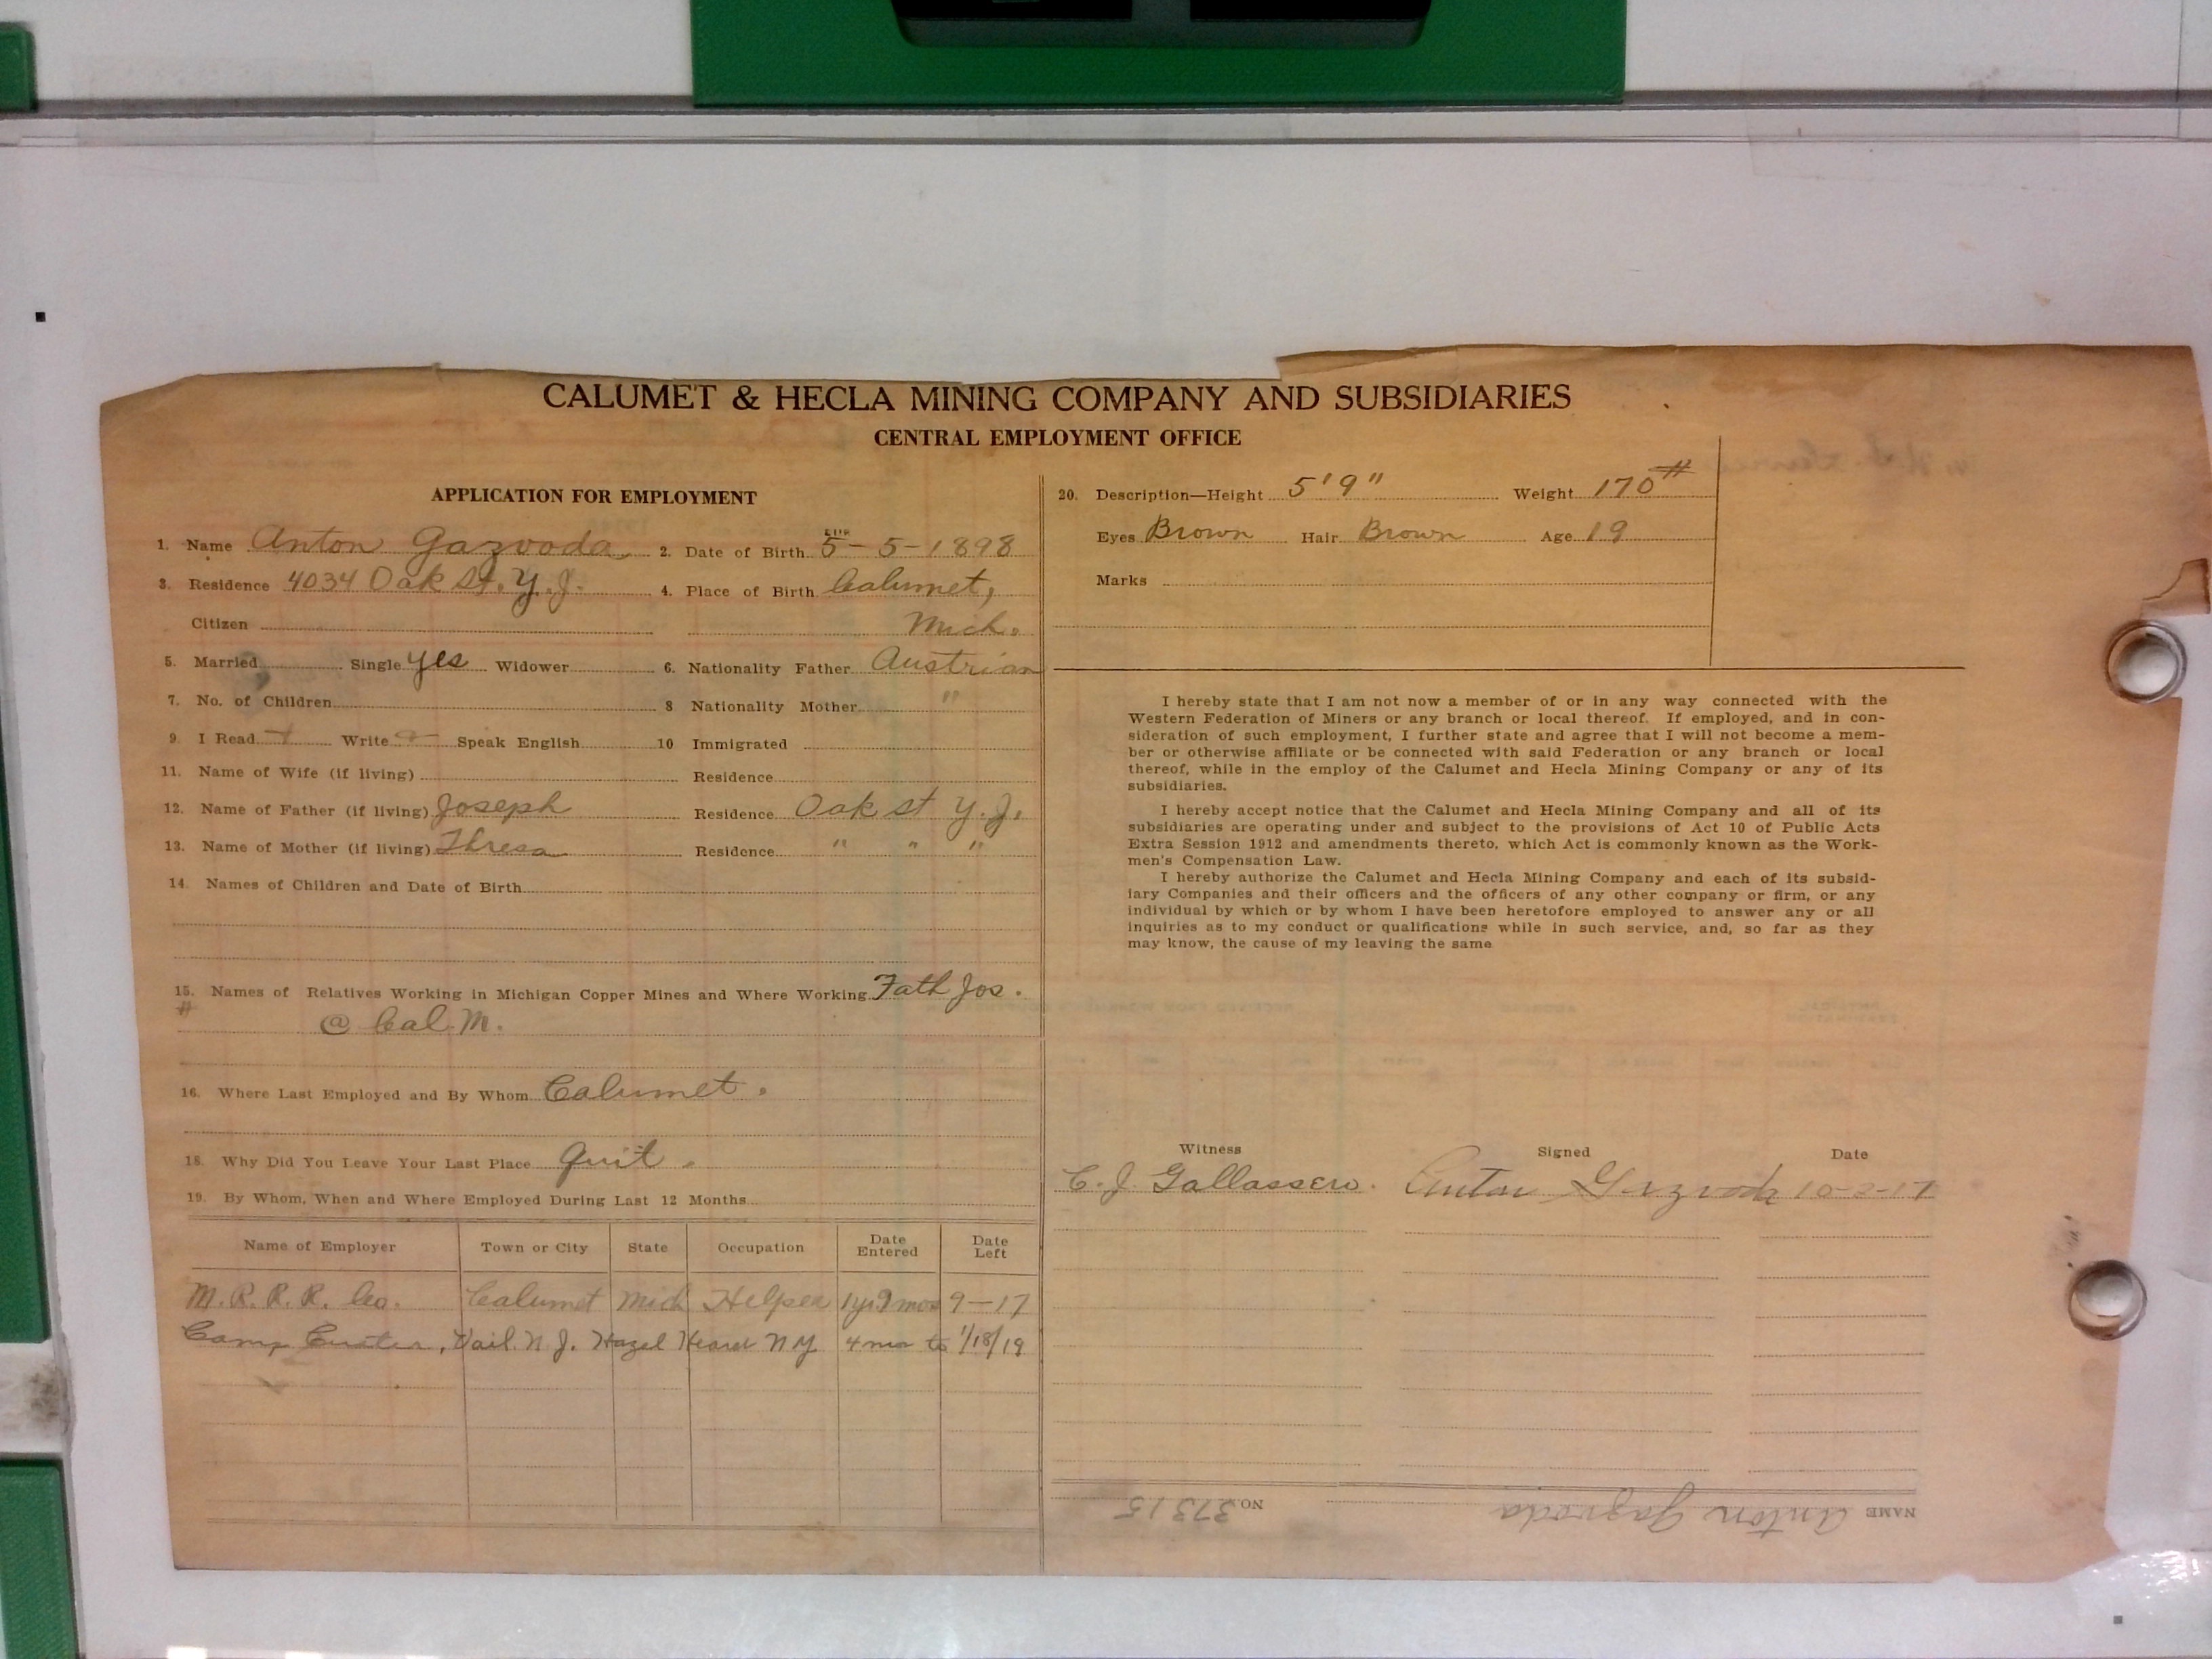 CALUMET & HECLA MINING COMPANY AND SUBSIDIARIES
CENTRAL EMPLOYMENT OFFICE
APPLICATION FOR EMPLOYMENT
1. Name Anton Gazvoda 2. Date of Birth 5-5-1898
3. Residence 4034 Oak St. Y.J. 4. Place of Birth Calumet,
Citizen Mich.
5. Married Single yes Widower 6. Nationality Father Austrian
7. No. of Children 8 Nationality Mother "
9. I Read Write Speak English 10 Immigrated
11. Name of Wife (if living) Residence
12. Name of Father (if living) Joseph Residence Oak st Y.J.
13. Name of Mother (if living) Thresa Residence " " "
14. Names of Children and Date of Birth
15. Names of Relatives Working in Michigan Copper Mines and Where Working Fath Jos.
# @ Cal. M.
16. Where Last Employed and By Whom Calumet.
18. Why Did You Leave Your Last Place quit.
19. By Whom, When and Where Employed During Last 12 Months
Name of Employer Town or City State Occupation Date Entered Date Left
M. R. R. R. Co. Calumet Mich Helper 1yr 9 mos 9-17
Camp Custer, Vail N.J. Hazel N Y 4 mo to 1/18/19
20. Description—Height 5'9" Weight 170#
Eyes Brown Hair Brown Age 19
Marks
I hereby state that I am not now a member of or in any way connected with the
Western Federation of Miners or any branch or local thereof. If employed, and in con-
sideration of such employment, I further state and agree that I will not become a mem-
ber or otherwise affiliate or be connected with said Federation or any branch or local
thereof, while in the employ of the Calumet and Hecla Mining Company or any of its
subsidiaries.
I hereby accept notice that the Calumet and Hecla Mining Company and all of its
subsidiaries are operating under and subject to the provisions of Act 10 of Public Acts
Extra Session 1912 and amendments thereto, which Act is commonly known as the Work-
men's Compensation Law.
I hereby authorize the Calumet and Hecla Mining Company and each of its subsid-
iary Companies and their officers and the officers of any other company or firm, or any
individual by which or by whom I have been heretofore employed to answer any or all
inquiries as to my conduct or qualifications while in such service, and, so far as they
may know, the cause of my leaving the same
Witness Signed Date
C. J. Gallassero. Anton Gazvoda 10-2-17
NAME Anton Gazvoda NO. 37315